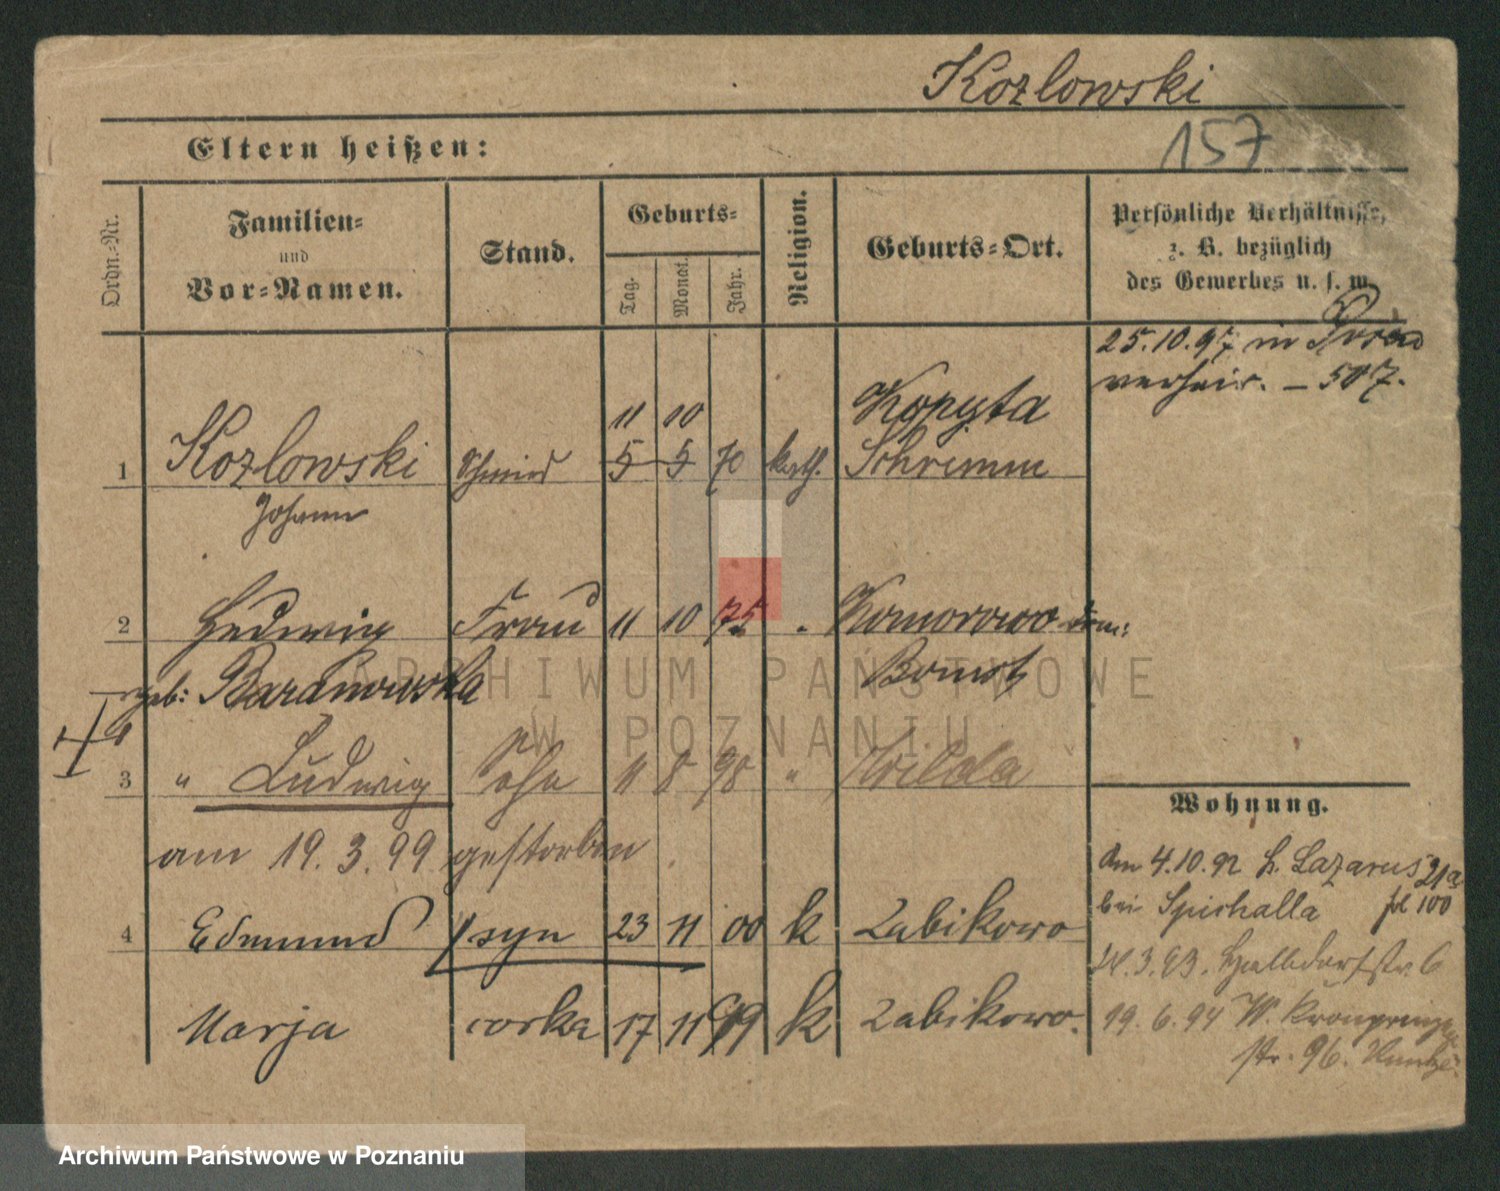 Kozlowski
157
Eltern heißen:
Ordn.-Nr.
Familien-
und
Vor-Namen.
Stand.
Geburts-
Tag.
Monat.
Jahr.
Religion.
Geburts-Ort.
Persönliche Verhältnisse,
z. B. bezüglich
des Gewerbes u. s. w.
25.10.97 in Posen
verheir. – 507.
11 10 Kopyta
1 Kozlowski Schmied 5 5 70 kath. Schrimm
Johann
2 Hedwig Frau 11 10 75 " Komorowo
geb: Baranowska Bomst
3 " Ludwig Sohn 11 8 98 " Wilda
am 19.3.99 gestorben.
4 Edmund syn 23 11 00 k Zabikowo
Marja corka 17 11 99 k Zabikowo.
Wohnung.
Am 4.10.92 St. Lazarus 21a
bei Spichalla fol 100
3.93. Halbdorfstr. 6
19.6.94 W. Kronprinzen
str. 96.
ARCHIWUM PAŃSTWOWE
W POZNANIU
Archiwum Państwowe w Poznaniu